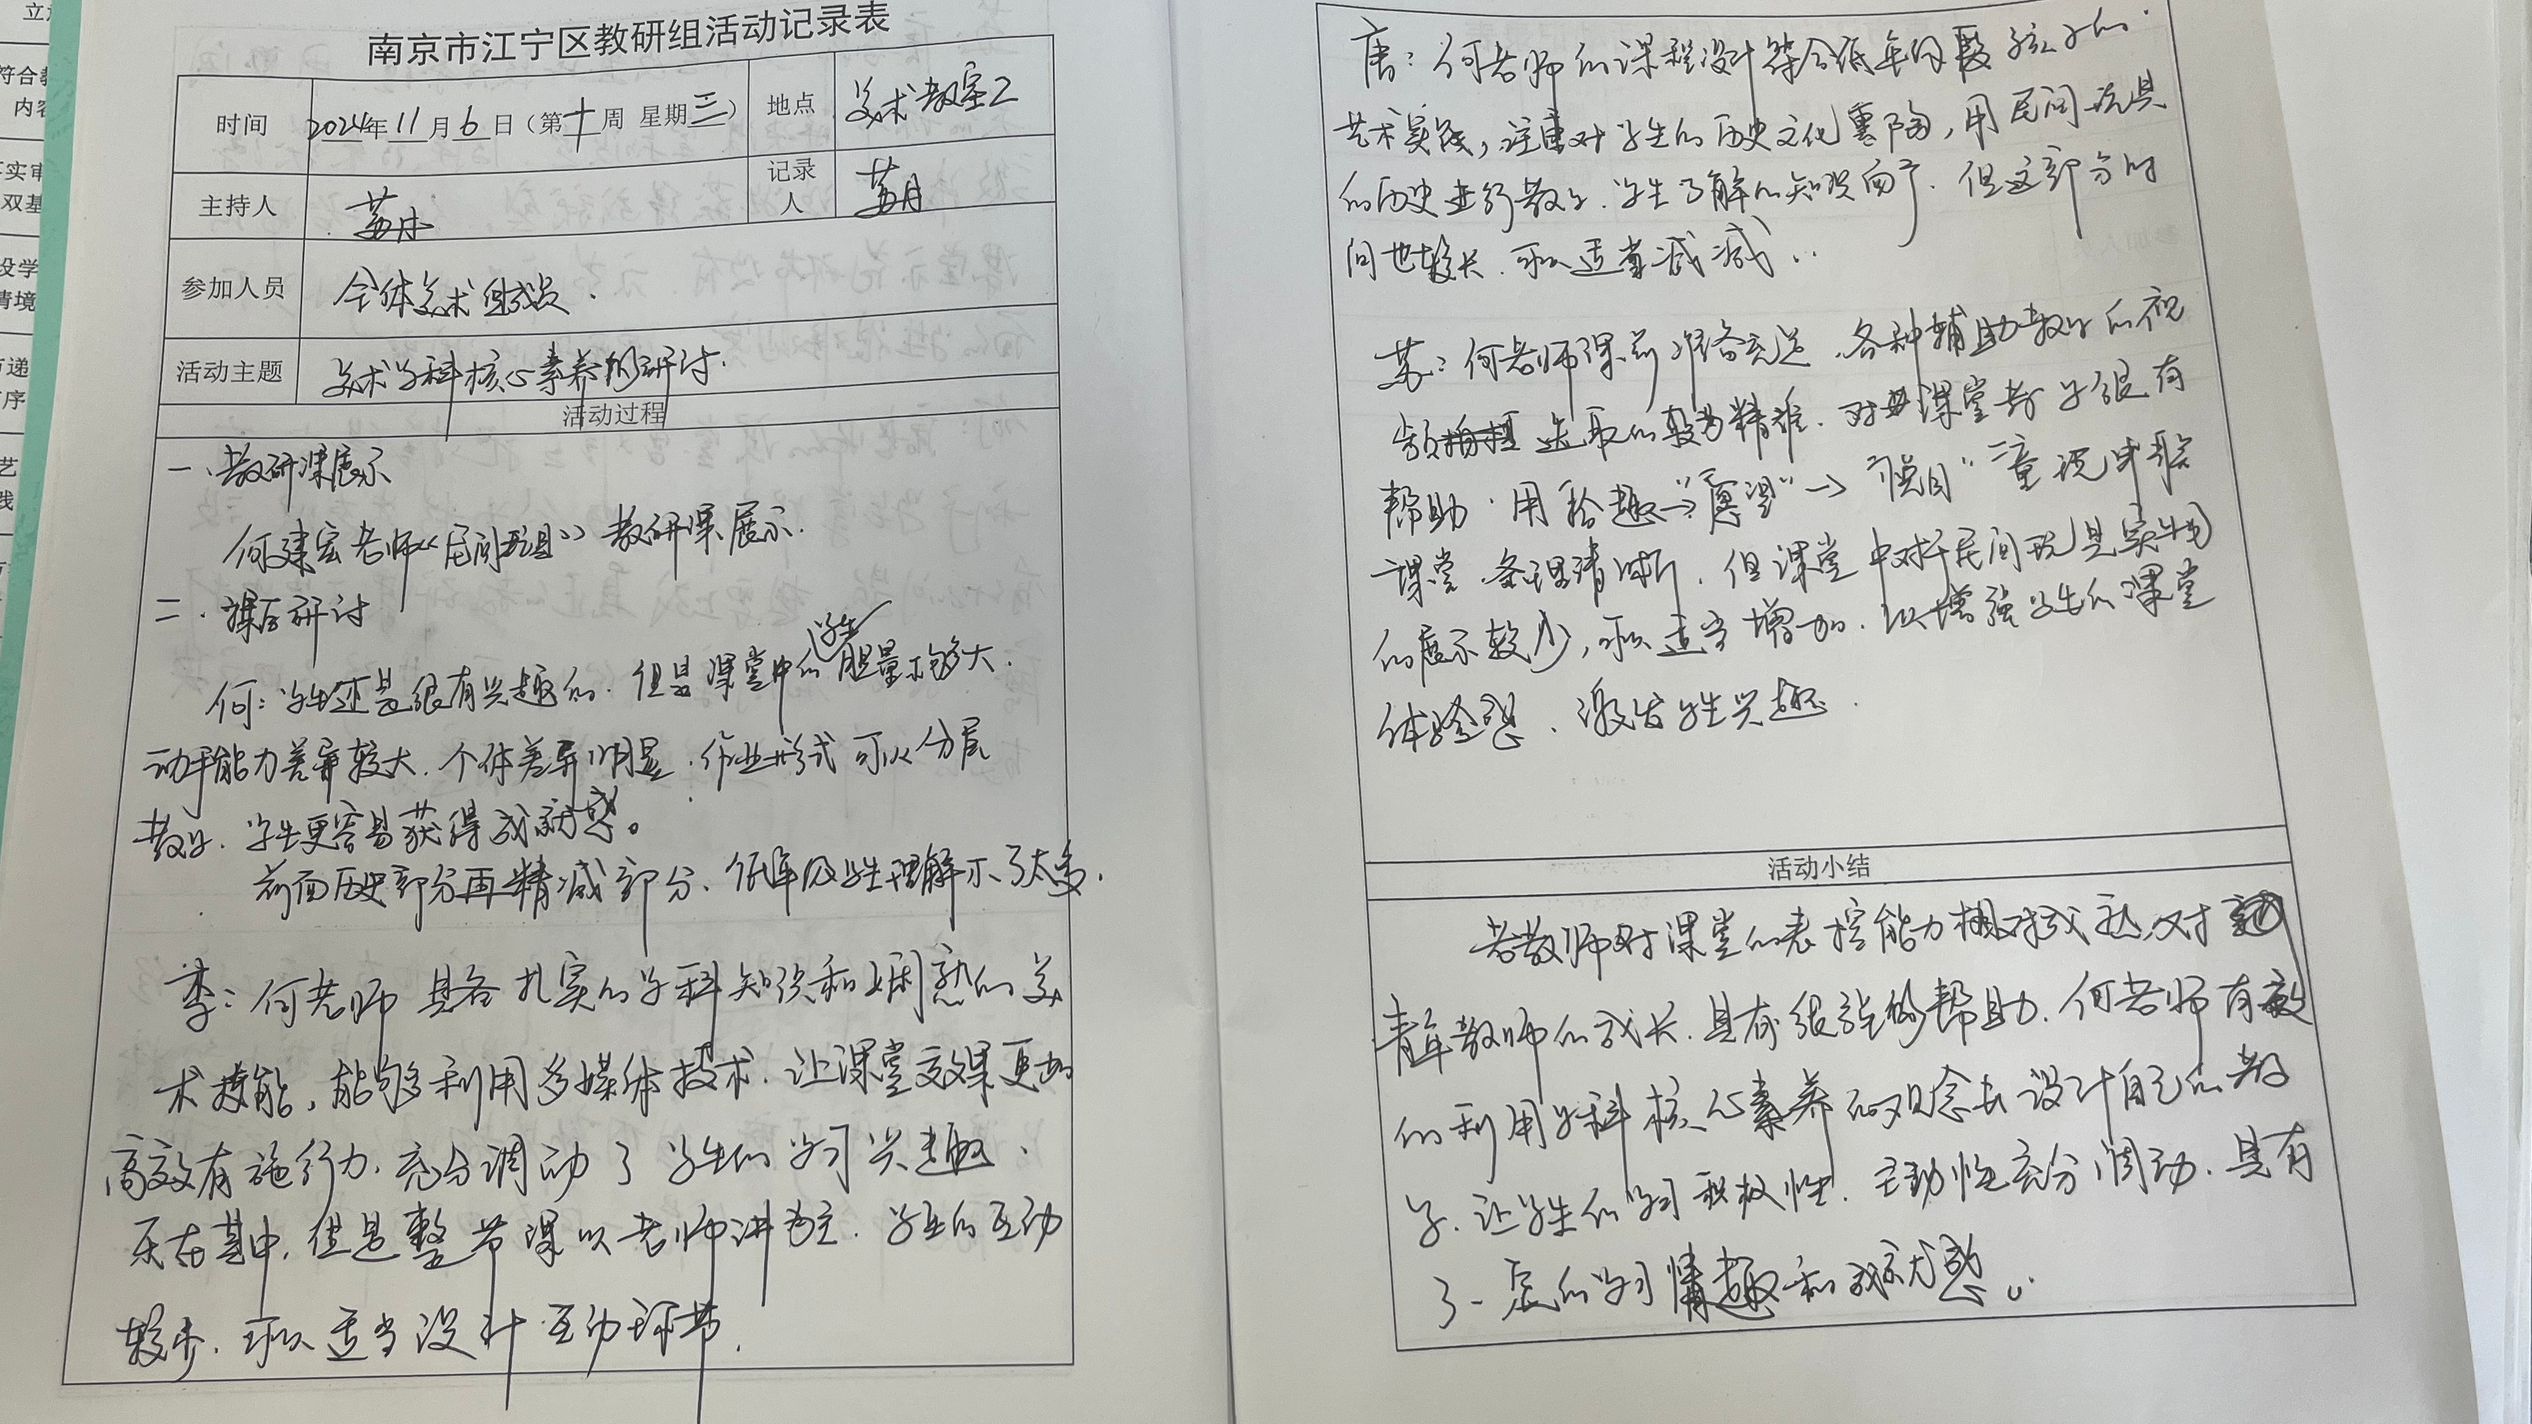 南京市江宁区教研组活动记录表
时间 2024年11月6日（第十周 星期三） 地点 美术教室2
主持人 苏丹 记录人 苏丹
参加人员 全体美术组成员.
活动主题 美术学科核心素养的研讨.
活动过程
一、教研课展示
何建宏老师《民间玩具》教研课展示.
二.课后研讨
何：学生还是很有兴趣的.但是课堂中的学生胆量不够大.
动手能力差异较大.个体差异明显.作业形式可以分层
教学.学生更容易获得成就感。
前面历史部分再精减部分、低年级学生理解不了太多.
李：何老师具备扎实的学科知识和娴熟的美
术技能，能够利用多媒体技术.让课堂效果更加
高效有施行力.充分调动了学生的学习兴趣、
乐在其中.但是整节课以老师讲为主.学生的互动
较少.可以适当设计互动环节.
唐：何老师的课程设计符合低年级段孩子的
艺术实践，注重对学生的历史文化熏陶，用民间玩具
的历史进行教学.学生了解的知识面广.但这部分时
间也较长.可以适当减减..
苏：何老师课前准备充足.各种辅助教学的视
频选取的较为精准.对课堂教学很有
帮助.用 趣→"愿望"→ 重 串联
课堂.条理清晰.但课堂中对于民间玩具实物
的展示较少，可以适当增加.以增强学生的课堂
体验感、激发学生兴趣.
活动小结
老教师对课堂的 控能力相对成熟，对
青年教师的成长.具有很强的帮助.何老师有效
的利用学科核心素养的观念去设计自己的教
学.让学生的学习积极性.主动性充分调动.具有
了一定的学习情趣和成就感。